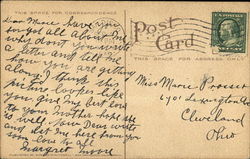 THIS SPACE FOR CORRESPONDENCE
Post
Card
THIS SPACE FOR ADDRESS ONLY
Dear Marie have you
forgot all about me
why dont you write
a letter and tell me
how you are getting
along I think this
picture looks like
you give my best love
to your mother hope she
is well now Dear write
and let me hear from you
soon love to all
Margret Moore
Miss Marie Prosser
6701 Lexington
Cleveland
Ohio